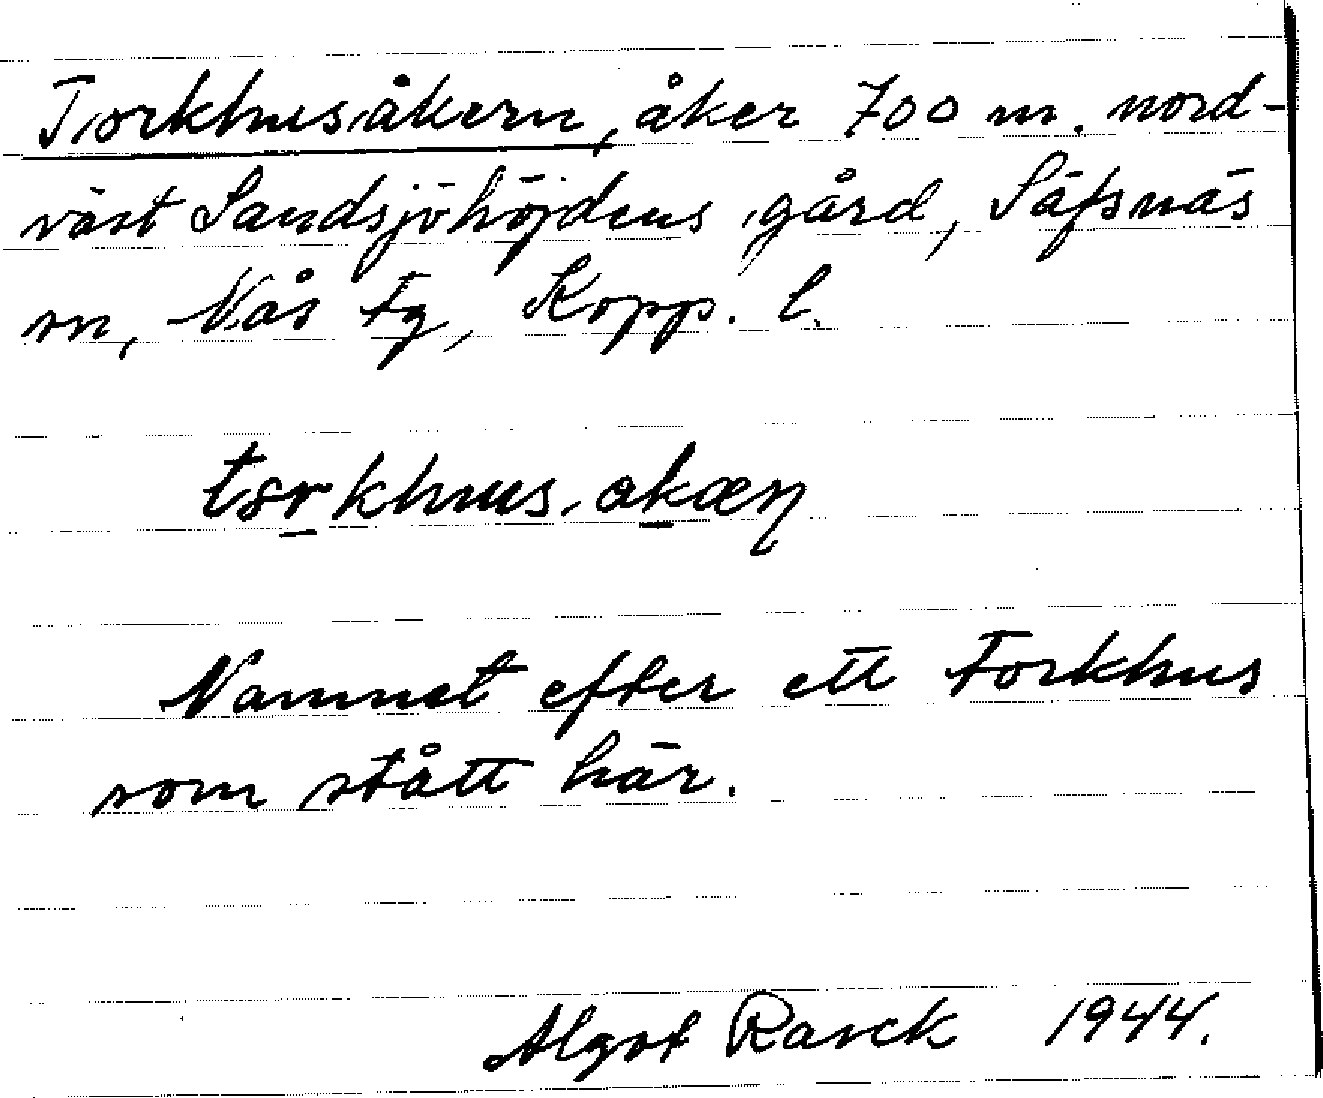 Torkhusåkern, åker 700 m. nord-
väst Sandsjöhöjdens gård, Säfsnäs
sn, Nås tg, Kopp. l.
Namnet efter ett torkhus
som stått här.
Algot Rasck 1944.